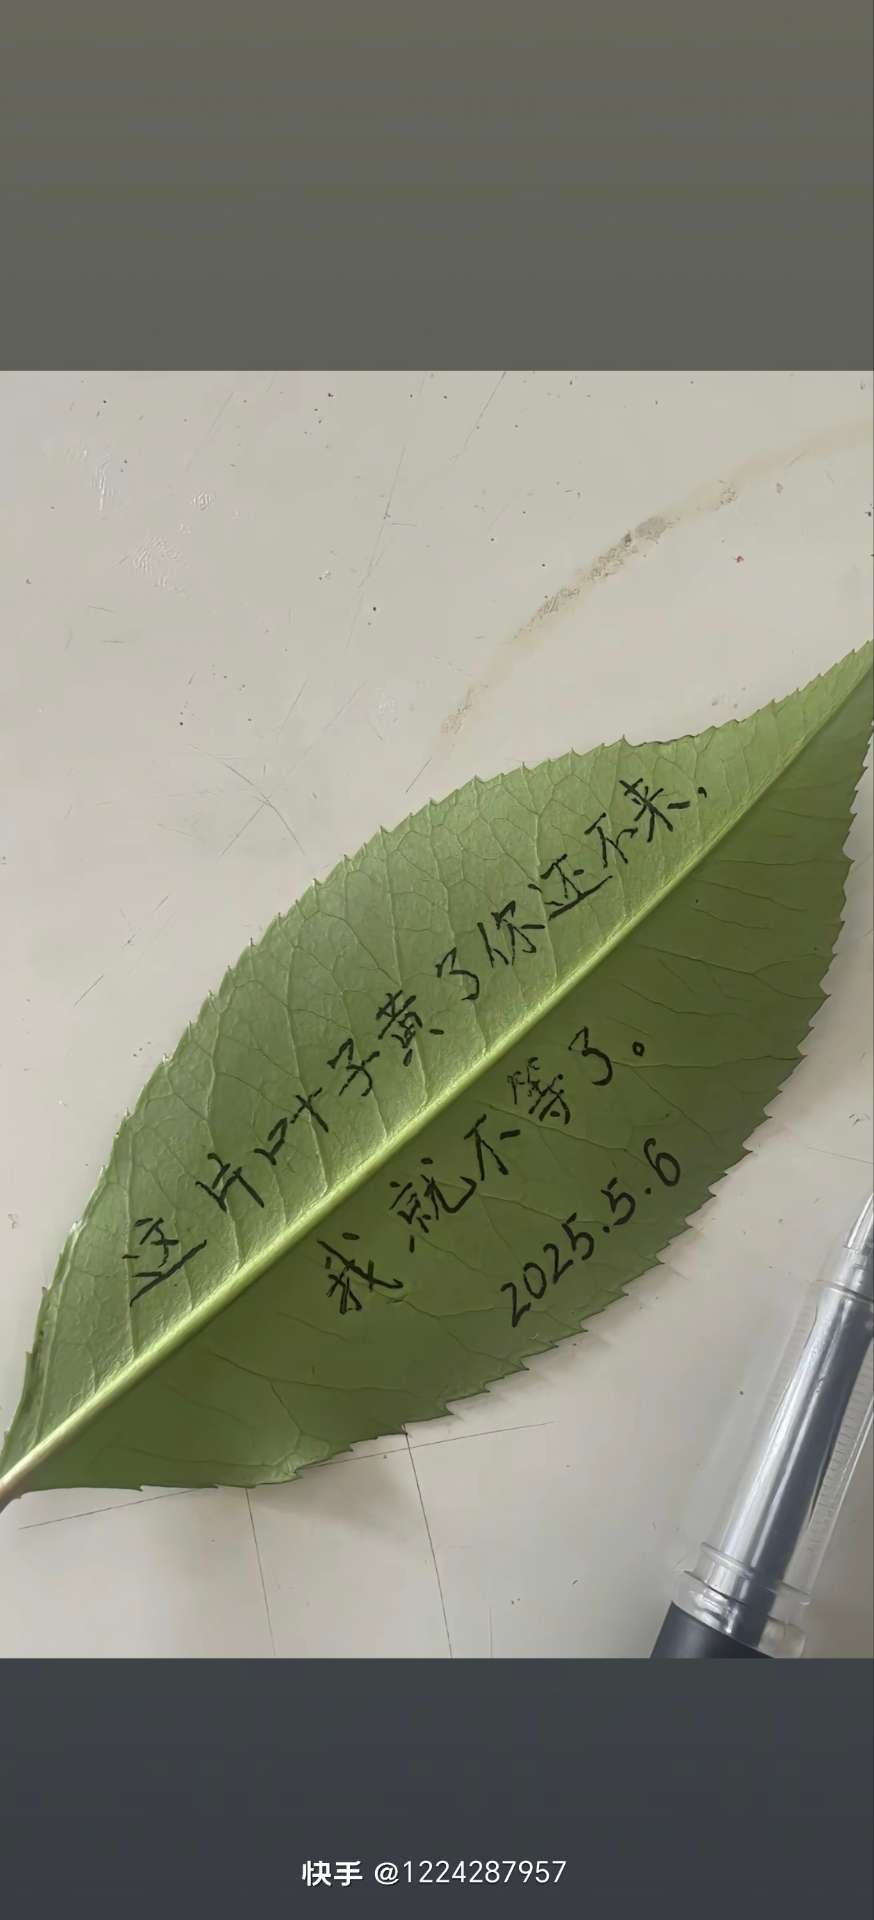 这片叶子黄了你还不来，
我就不等了。
2025.5.6
快手 @1224287957